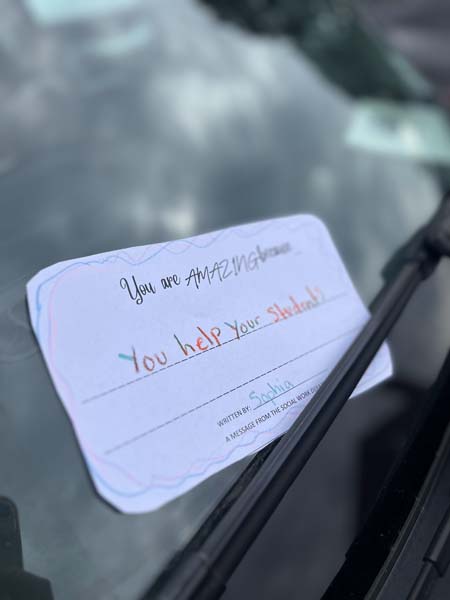 You are AMAZING because
You help your students
WRITTEN BY: Sophia
A MESSAGE FROM THE SOCIAL WORK